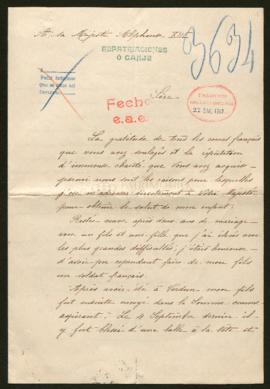 A Sa Majesté Alphonse XIII
REPATRIACIONES
Ó CANJE
3634
Sire
Fecho
e.a.e.
La gratitude de tous les cœurs français
que vous avez soulagés et la réputation
d'immense charité que vous avez
sont les raisons pour lesquelles
je directement à Votre Majesté
pour obtenir le salut de mon enfant.
Restée veuve après deux ans de mariage
avec un fils et une fille que j'ai élevés avec
les plus grandes difficultés, j'étais heureuse
d'avoir pu cependant faire de mon fils
un soldat français.
Après avoir été à Verdun mon fils
fut ensuite envoyé dans la Somme comme
aspirant. Le 4 Septembre dernier il
y fut blessé d'une balle à la tête et